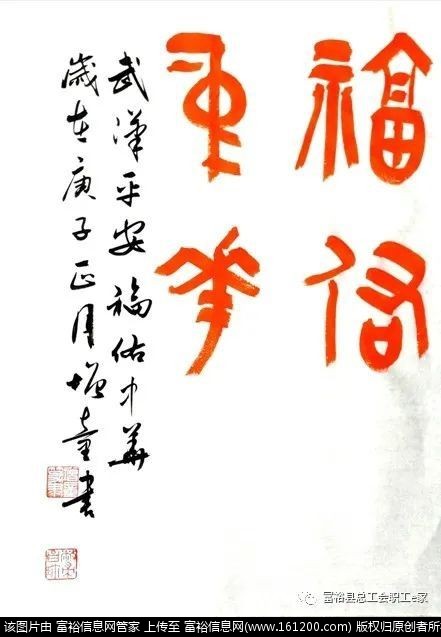 福佑
中華
武漢平安福佑中華
歲在庚子正月增童書
富裕县总工会职工e家
该图片由 富裕信息网管家 上传至 富裕信息网(www.161200.com) 版权归原创者所